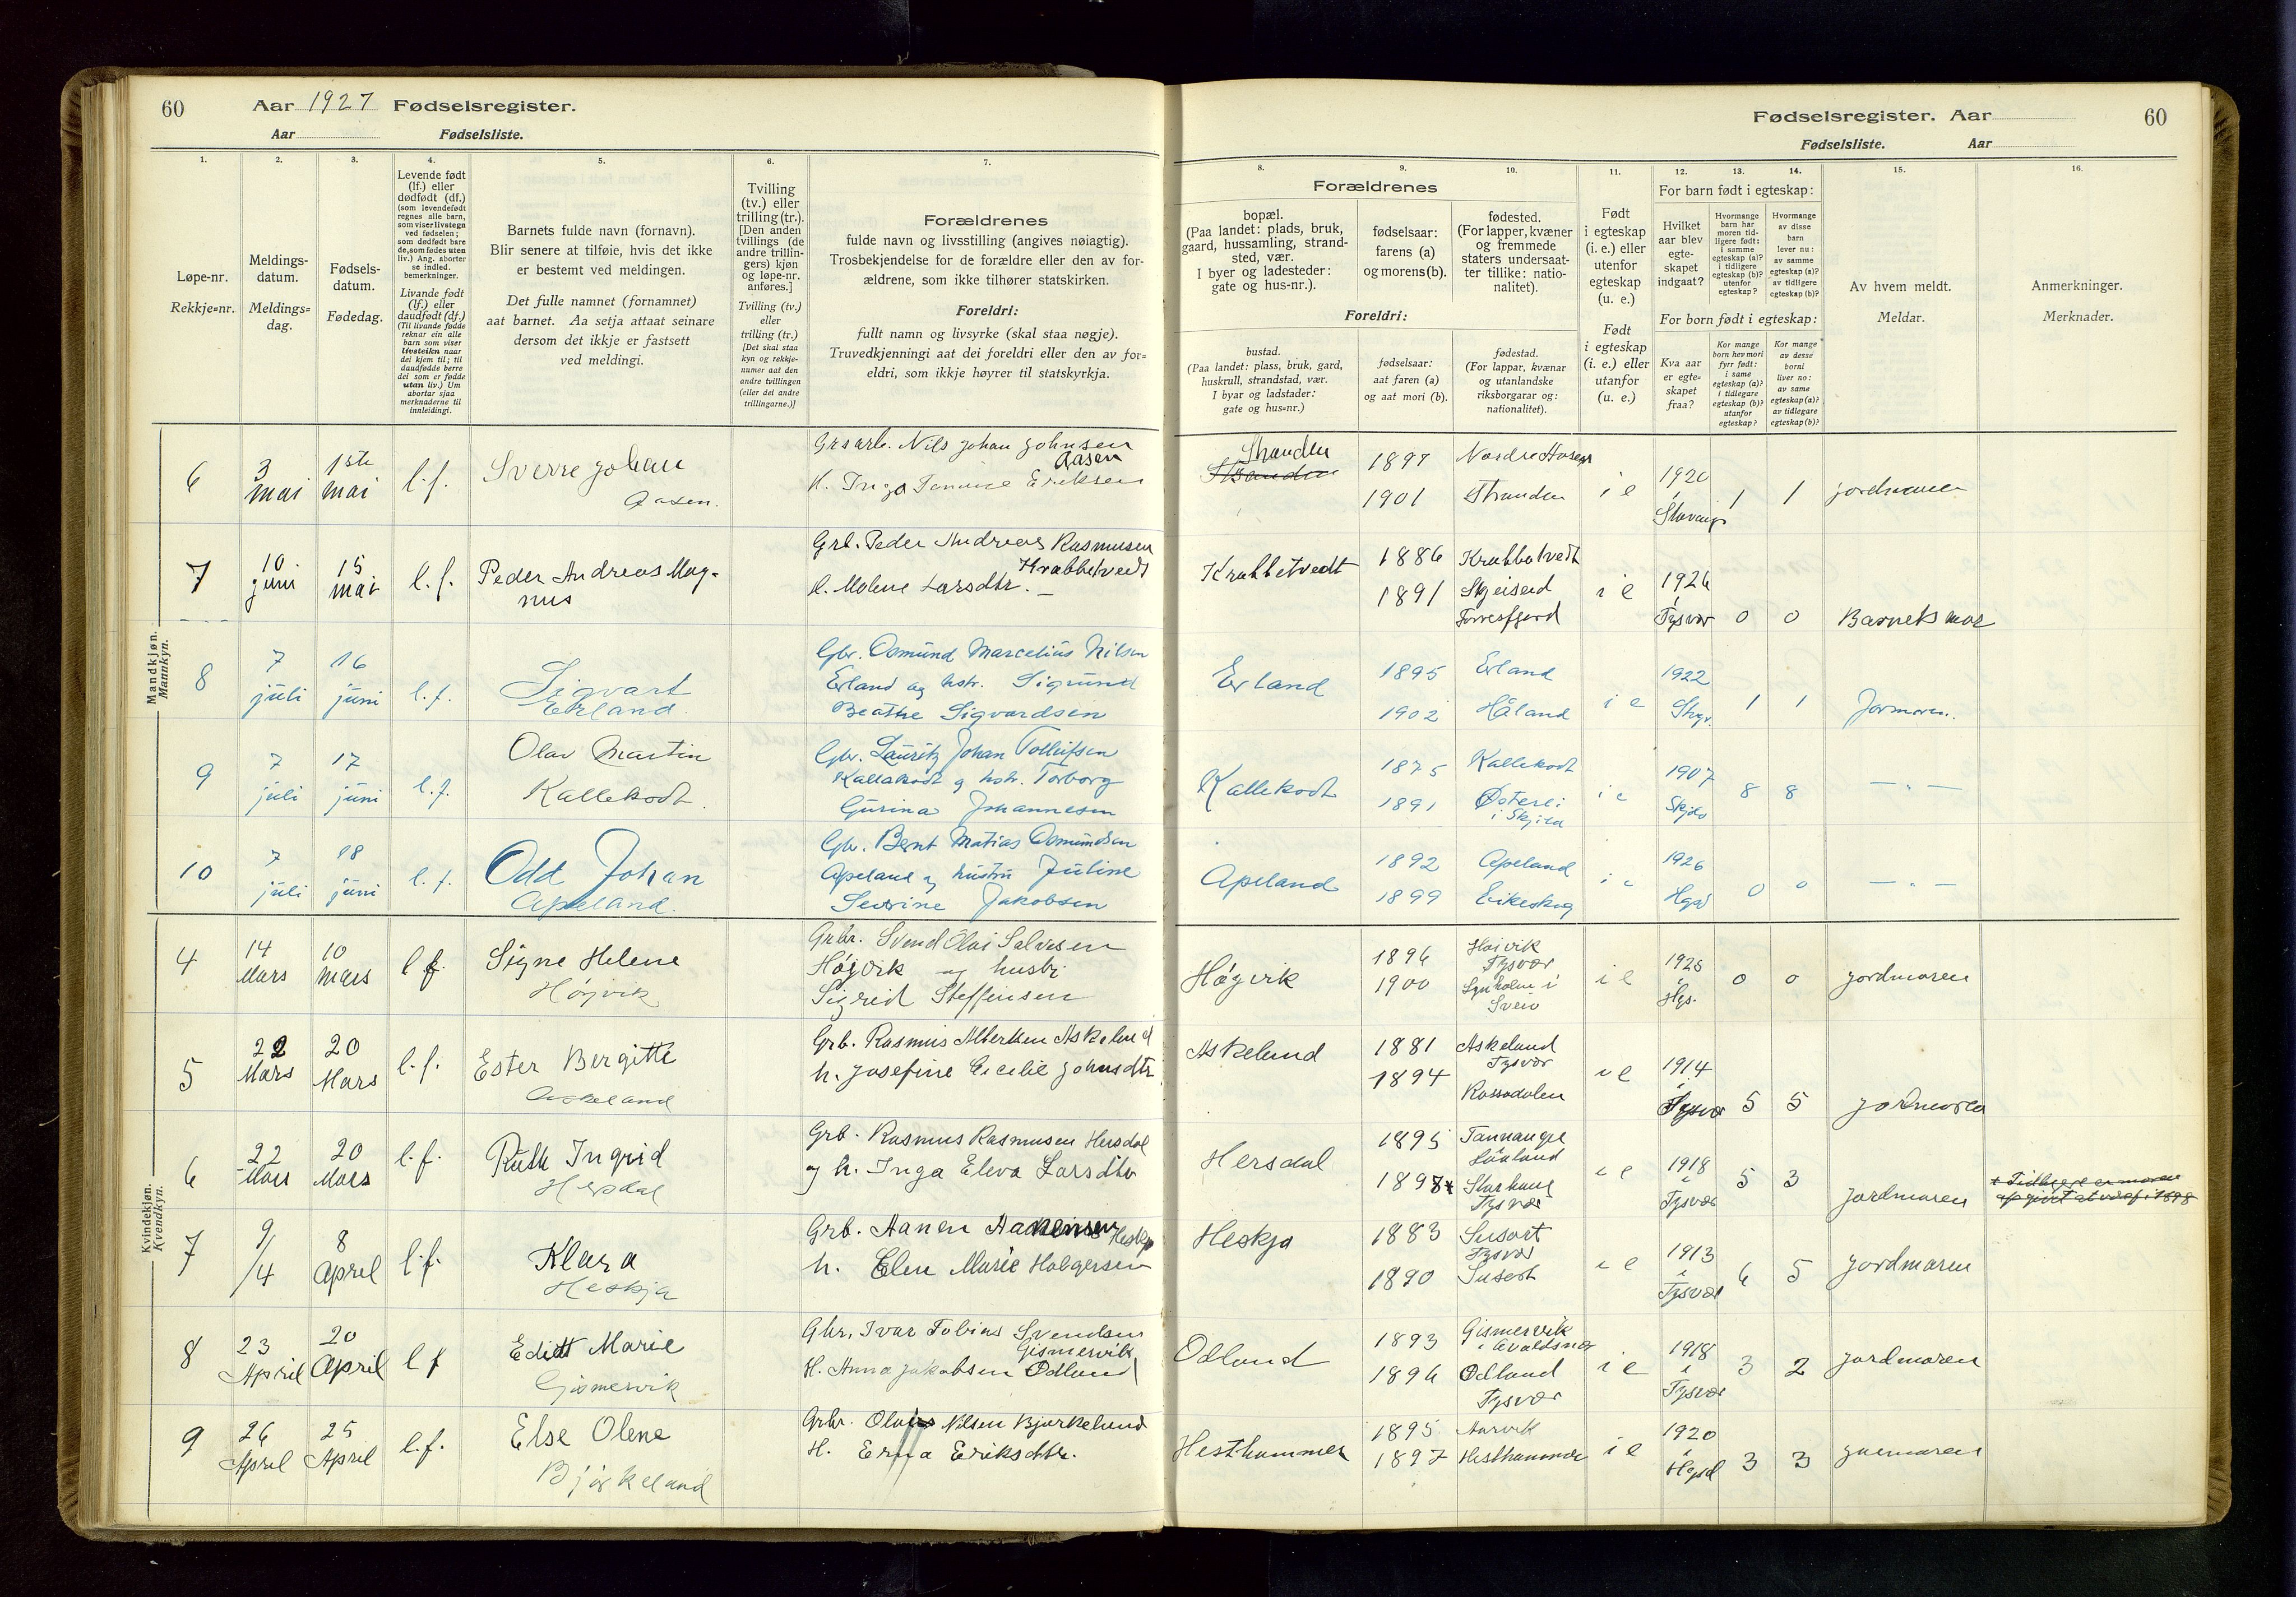 60 Aar 1927 Fødselsregister.
Aar Fødselsliste.
Fødselsregister. Aar 60
Fødselsliste. Aar
1. 2. 3. 4. 5. 6. 7. 8. 9. 10. 11. 12. 13. 14. 15. 16.
Løpe-nr.
Rekkje=nr.
Meldings-
datum.
Meldings=
dag.
Fødsels-
datum.
Fødedag.
Levende født
(lf.) eller
dødfødt (df.)
(som levendefødt
regnes alle barn,
som viser livstegn
ved fødselen;
som dødfødt bare
de, som fødes uten
liv.) Ang. aborter
se indled.
bemerkninger.
Livande født
(lf.) eller
daudfødt (df.)
(Til livande fødde
reknar ein alle
barn som viser
livsteikn naar
dei kjem til; til
daudfødde berre
dei som er fødde
utan liv.) Um
abortar sjaa
merknaderne til
innleidingi.
Barnets fulde navn (fornavn).
Blir senere at tilføie, hvis det ikke
er bestemt ved meldingen.
Det fulle namnet (fornamnet)
aat barnet. Aa setja attaat seinare
dersom det ikkje er fastsett
ved meldingi.
Tvilling
(tv.) eller
trilling (tr.).
[Den anden
tvillings (de
andre trillin-
gers) kjøn
og løpe-nr.
anføres.]
Tvilling (tv.)
eller
trilling (tr.)
[Det skal staa
kyn og rekkje-
numer aat den
andre tvillingen
(eller dei andre
trillingarne.)]
Forældrenes
fulde navn og livsstilling (angives nøiagtig).
Trosbekjendelse for de forældre eller den av for-
ældrene, som ikke tilhører statskirken.
Foreldri:
fullt namn og livsyrke (skal staa nøgje).
Truvedkjenningi aat dei foreldri eller den av for=
eldri, som ikkje høyrer til statskyrkja.
Forældrenes
bopæl.
(Paa landet: plads, bruk,
gaard, hussamling, strand-
sted, vær.
I byer og ladesteder:
gate og hus-nr.).
fødselsaar:
farens (a)
og morens (b).
fødested.
(For lapper, kvæner
og fremmede
staters undersaat-
ter tillike: natio-
nalitet).
Foreldri:
bustad.
(Paa landet: plass, bruk, gard,
huskrull, strandstad, vær.
I byar og ladstader:
gate og hus=nr.)
fødselsaar:
aat faren (a)
og aat mori (b).
fødestad.
(For lappar, kvænar
og utanlandske
riksborgarar og:
nationalitet).
Født
i egteskap
(i. e.) eller
utenfor
egteskap
(u. e.)
Født
i egteskap
(i. e.) eller
utanfor
(u. e.)
For barn født i egteskap:
Hvilket
aar blev
egte-
skapet
indgaat?
Hvormange
barn har
moren tid-
ligere født:
i samme
egteskap (a)?
i tidligere
egteskap (b)?
utenfor
egteskap?
Hvormange
av disse
barn
lever nu:
av samme
egteskap (a)?
av tidligere
egteskap (b)?
For born født i egteskap:
Kva aar
er egte=
skapet
fraa?
Kor mange
born hev mori
fyrr født:
i same
egteskap (a)?
i tidlegare
egteskap (b)?
utanfor
egteskap?
Kor mange
av desse
borni
liver no:
av same
egteskap (a)?
av tidlegare
egteskap (b)?
Av hvem meldt.
Meldar.
Anmerkninger.
Merknader.
Mandkjøn.
Mannkyn.
6 3 mai 1ste mai l.f. Sverre Johan
Aasen.
Grsarb. Nils Johan Johnsen
Aasen
H. Inga Eriksen
Stranden
1897
1901 Stranden i e 1920
1 1 jordmoren
7 10 juni 15 mai l.f. Peder Andreas Mag-
nus
Grb. Peder Andreas Rasmusen
Krabbetvedt
H. Malene Larsdtr.
Krabbetvedt 1886 Krabbatvedt
1891 Skjeiseid
Førresfjord i e 1926
Tysvær 0 0 Barnets mor
8 7 juli 16 juni l.f. Sigvart
Erland.
Gbr. Osmund Marcelius Nilsen
Erland og hstr. Sigrund
Beathe Sigvardsen
Erland 1895 Erland
1902 Håland i e 1922
1 1 Jormoren.
9 7 juli 17 juni l.f. Olav Martin
Kallekodt.
Gbr. Lauritz Johan Tollefsen
Kallekodt og hstr. Torborg
Gurina Johannesen
Kallekodt 1875 Kallekodt
1891 i e 1907
Skjold 8 8 — „ —
10 7 juli 18 juni l.f. Odd Johan
Apeland.
Gbr. Bernt Matias Osmundsen
Apeland og hustru Juline
Severine Jakobsen
Apeland 1892 Apeland
1899 Eikeskog i e 1926
0 0 — „ —
Kvindekjøn.
Kvendkyn.
4 14 Mars 10 Mars l f. Signe Helene
Høyvik
Grbr. Svend Olai Salvesen
Højvik og hustr.
Sigrid Steffensen
Høgvik 1896 Høivik
Tysvær
1900
Sveio i e 1925
Hgs. 0 0 jordmoren
5 22 Mars 20 Mars l.f. Ester Bergitte
Askeland
Grb. Rasmus Albertsen Askeland
h. Josefine Cecilie Johnsdtr
Askeland 1881 Askeland
Tysvær
1894 Rossadalen i e 1914
i
Tysvær 5 5 jordmoren
6 22 Mars 20 Mars l.f. Ruth Ingrid
Hersdal
Grb. Rasmus Rasmusen Hersdal
og h. Inga Eleva Larsdtr
Hersdal 1895 Tannanger
1897 Tysvær i e 1918
i
Tysvær 5 3 jordmoren
7 9/4 8 April l.f. Klara
Heskja
Grb. Hanen Hanensen Heskja
h. Elen Marie Holgersen
Heskja 1883 Susort
Tysvær
1890 Susort i e 1913
i
Tysvær 6 5 jordmoren
8 23 April 20 April l f Edidt Marie
Gismervik
Gbr. Ivar Tobias Svendsen
Gismervik
H. Anna Jakobsen Odland
Odland 1893 Gismervik
i Avaldsnes
1896 Odland
Tysvær i e 1918
i
Tysvær 3 2 jordmoren
9 26 April 25 April l.f. Else Olene
Bjørkeland
Grbr. Nilsen Bjørkelund
H. Erna Eriksdtr.
Hesthammer 1895 Aarvik
1897 Hesthammer i e 1920
i
Hgsd 3 3 jormoren